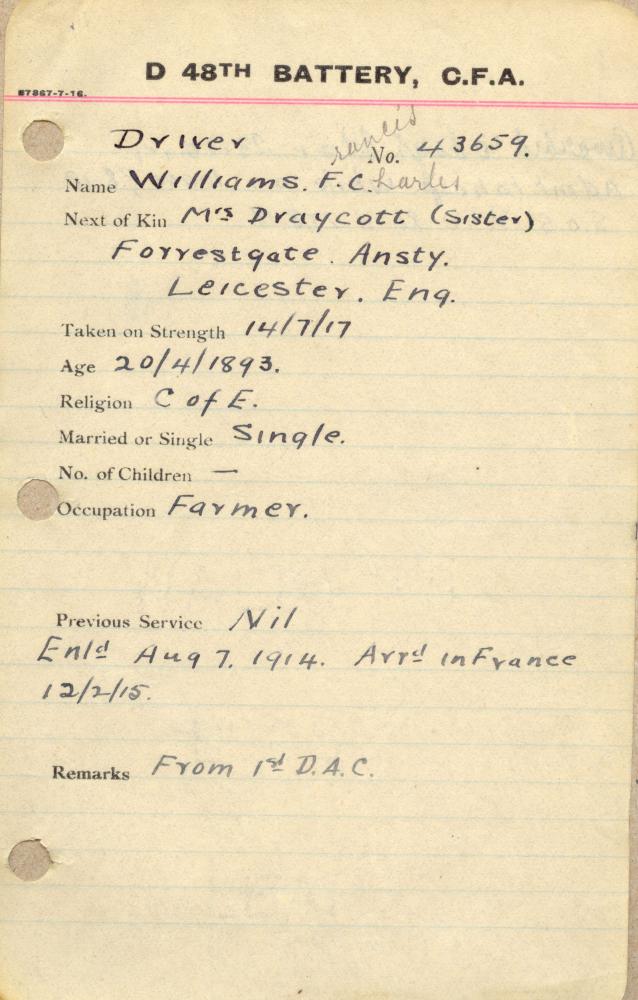 D 48TH BATTERY, C.F.A.
87867-7-16.
Driver
rancis
No. 43659.
Name Williams. F.C. harles
Next of Kin Mrs Draycott (Sister)
Forrestgate. Ansty.
Leicester. Eng.
Taken on Strength 14/7/17
Age 20/4/1893.
Religion C of E.
Married or Single Single.
No. of Children —
Occupation Farmer.
Previous Service Nil
Enld Aug 7. 1914. Arrd in France
12/2/15.
Remarks From 1st D.A.C.